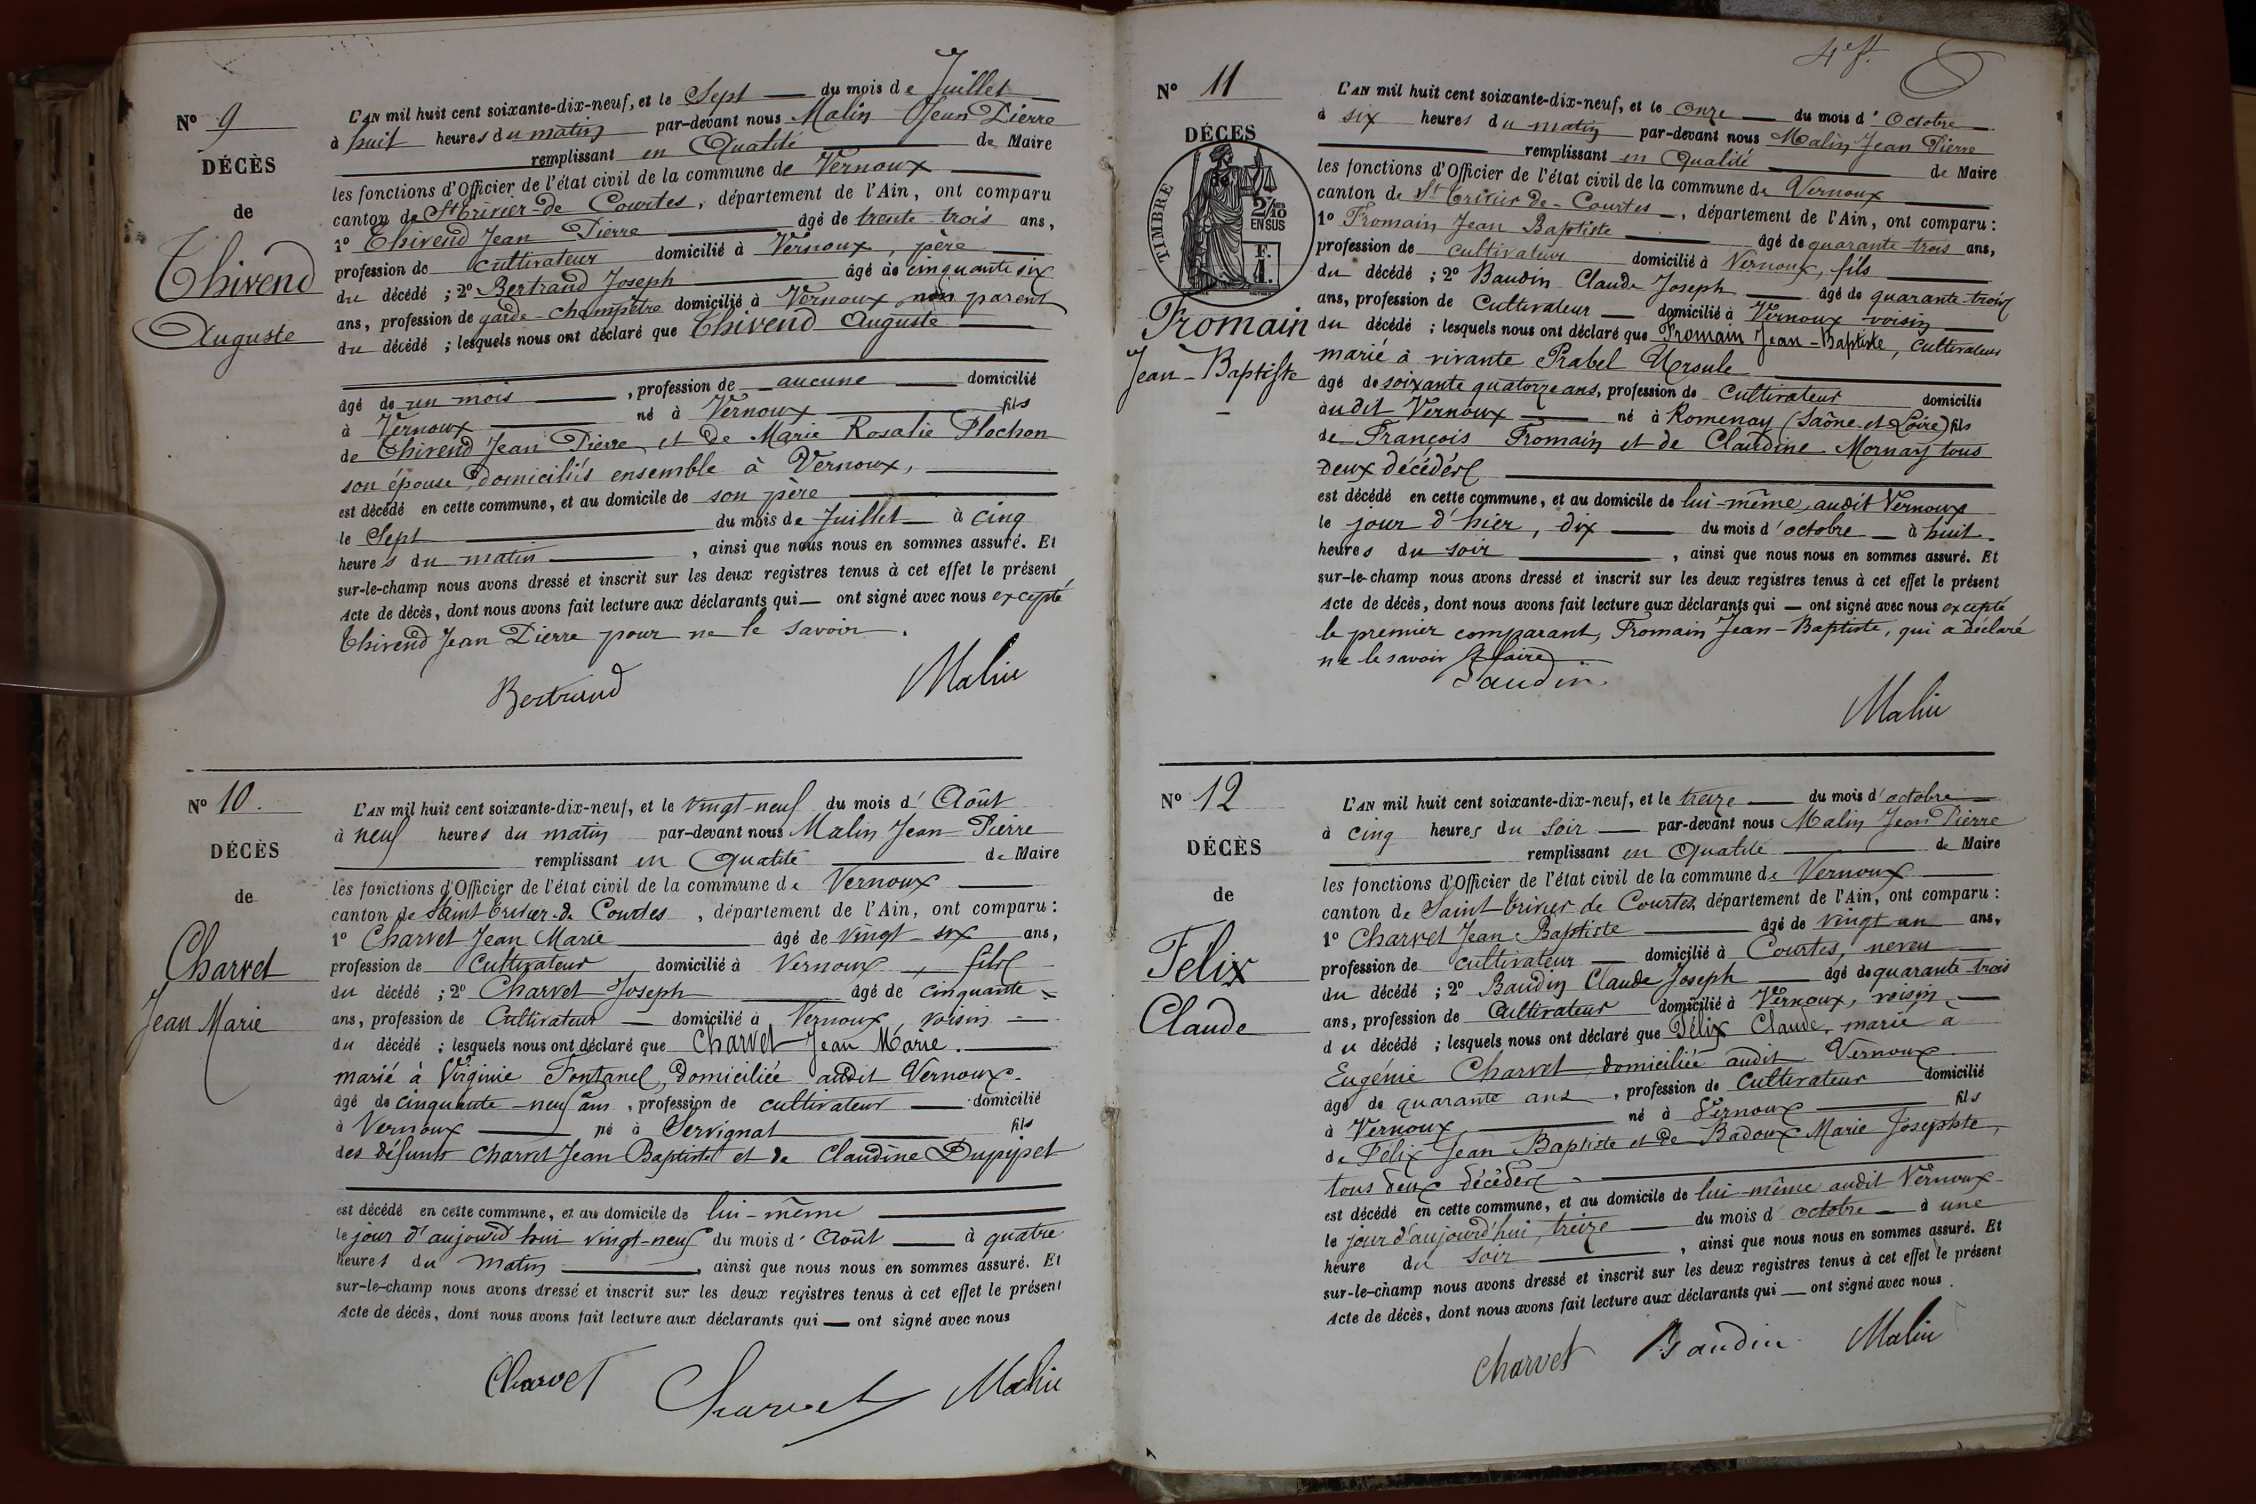 Nº 9
DÉCÈS
de
Thivend
Auguste
L'AN mil huit cent soixante-dix-neuf, et le Sept du mois de Juillet
à huit heures du matin par-devant nous Malin Jean Pierre
remplissant en Qualité de Maire
les fonctions d'Officier de l'état civil de la commune de Vernoux
canton de St Trivier-de Courtes, département de l'Ain, ont comparu
1º Thivend Jean Pierre âgé de trente-trois ans,
profession de cultivateur domicilié à Vernoux, père
du décédé ; 2º Bertrand Joseph âgé de cinquante six
ans, profession de garde-champêtre domicilié à Vernoux, non parent
du décédé ; lesquels nous ont déclaré que Thivend Auguste
âgé de un mois, profession de aucune domicilié
à Vernoux né à Vernoux fils
de Thivend Jean Pierre et de Marie Rosalie Plochon
son épouse, domiciliés ensemble à Vernoux,
est décédé en cette commune, et au domicile de son père
le Sept du mois de Juillet à cinq
heures du matin, ainsi que nous nous en sommes assuré. Et
sur-le-champ nous avons dressé et inscrit sur les deux registres tenus à cet effet le présent
Acte de décès, dont nous avons fait lecture aux déclarants qui ont signé avec nous excepté
Thivend Jean Pierre pour ne le savoir.
Bertrand Malin
Nº 10.
DÉCÈS
de
Charvet
Jean Marie
L'AN mil huit cent soixante-dix-neuf, et le vingt-neuf du mois d'Août
à neuf heures du matin par-devant nous Malin Jean Pierre
remplissant en Qualité de Maire
les fonctions d'Officier de l'état civil de la commune de Vernoux
canton de Saint Trivier-de Courtes, département de l'Ain, ont comparu :
1º Charvet Jean Marie âgé de vingt-six ans,
profession de Cultivateur domicilié à Vernoux, fils
du décédé ; 2º Charvet Joseph âgé de cinquante
ans, profession de Cultivateur domicilié à Vernoux, voisin
du décédé ; lesquels nous ont déclaré que Charvet Jean Marie.
marié à Virginie Fontanel, domiciliée audit Vernoux.
âgé de cinquante-neuf ans, profession de cultivateur domicilié
à Vernoux né à Servignat fils
des défunts Charvet Jean Baptiste et de Claudine Dupipet
est décédé en cette commune, et au domicile de lui-même
le jour d'aujourd'hui vingt-neuf du mois d'Août à quatre
heures du matin, ainsi que nous nous en sommes assuré. Et
sur-le-champ nous avons dressé et inscrit sur les deux registres tenus à cet effet le présent
Acte de décès, dont nous avons fait lecture aux déclarants qui ont signé avec nous
Charvet Charvet Malin
4e f.
Nº 11
DÉCÈS
de
TIMBRE
2/10
EN SUS
F.
1.
Fromain
Jean-Baptiste
L'AN mil huit cent soixante-dix-neuf, et le onze du mois d'Octobre
à six heures du matin par-devant nous Malin Jean Pierre
remplissant en Qualité de Maire
les fonctions d'Officier de l'état civil de la commune de Vernoux
canton de St Trivier-de-Courtes, département de l'Ain, ont comparu :
1º Fromain Jean Baptiste âgé de quarante-trois ans,
profession de cultivateur domicilié à Vernoux, fils
du décédé ; 2º Baudin Claude Joseph âgé de quarante-trois
ans, profession de Cultivateur domicilié à Vernoux voisin
du décédé ; lesquels nous ont déclaré que Fromain Jean-Baptiste, cultivateur
marié à vivante Prabel Ursule
âgé de soixante quatorze ans, profession de Cultivateur domicilié
audit Vernoux né à Romenay (Saône-et-Loire) fils
de François Fromain et de Claudine Mornay tous
deux décédés
est décédé en cette commune, et au domicile de lui-même, audit Vernoux
le jour d'hier, dix du mois d'octobre à huit
heures du soir, ainsi que nous nous en sommes assuré. Et
sur-le-champ nous avons dressé et inscrit sur les deux registres tenus à cet effet le présent
Acte de décès, dont nous avons fait lecture aux déclarants qui ont signé avec nous excepté
le premier comparant, Fromain Jean-Baptiste, qui a déclaré
ne le savoir faire.
Baudin
Malin
Nº 12
DÉCÈS
de
Felix
Claude
L'AN mil huit cent soixante-dix-neuf, et le treize du mois d'octobre
à cinq heures du soir par-devant nous Malin Jean Pierre
remplissant en Qualité de Maire
les fonctions d'Officier de l'état civil de la commune de Vernoux
canton de Saint-Trivier de Courtes, département de l'Ain, ont comparu :
1º Charvet Jean Baptiste âgé de vingt un ans,
profession de cultivateur domicilié à Courtes, neveu
du décédé ; 2º Baudin Claude Joseph âgé de quarante-trois
ans, profession de Cultivateur domicilié à Vernoux, voisin
du décédé ; lesquels nous ont déclaré que Félix Claude, marié à
Eugénie Charvet domiciliée audit Vernoux
âgé de quarante ans, profession de Cultivateur domicilié
à Vernoux né à Vernoux fils
de Felix Jean Baptiste et de Badoux Marie Josephte,
tous deux décédés
est décédé en cette commune, et au domicile de lui-même audit Vernoux
le jour d'aujourd'hui, treize du mois d'octobre à une
heure du soir, ainsi que nous nous en sommes assuré. Et
sur-le-champ nous avons dressé et inscrit sur les deux registres tenus à cet effet le présent
Acte de décès, dont nous avons fait lecture aux déclarants qui ont signé avec nous.
Charvet Baudin Malin